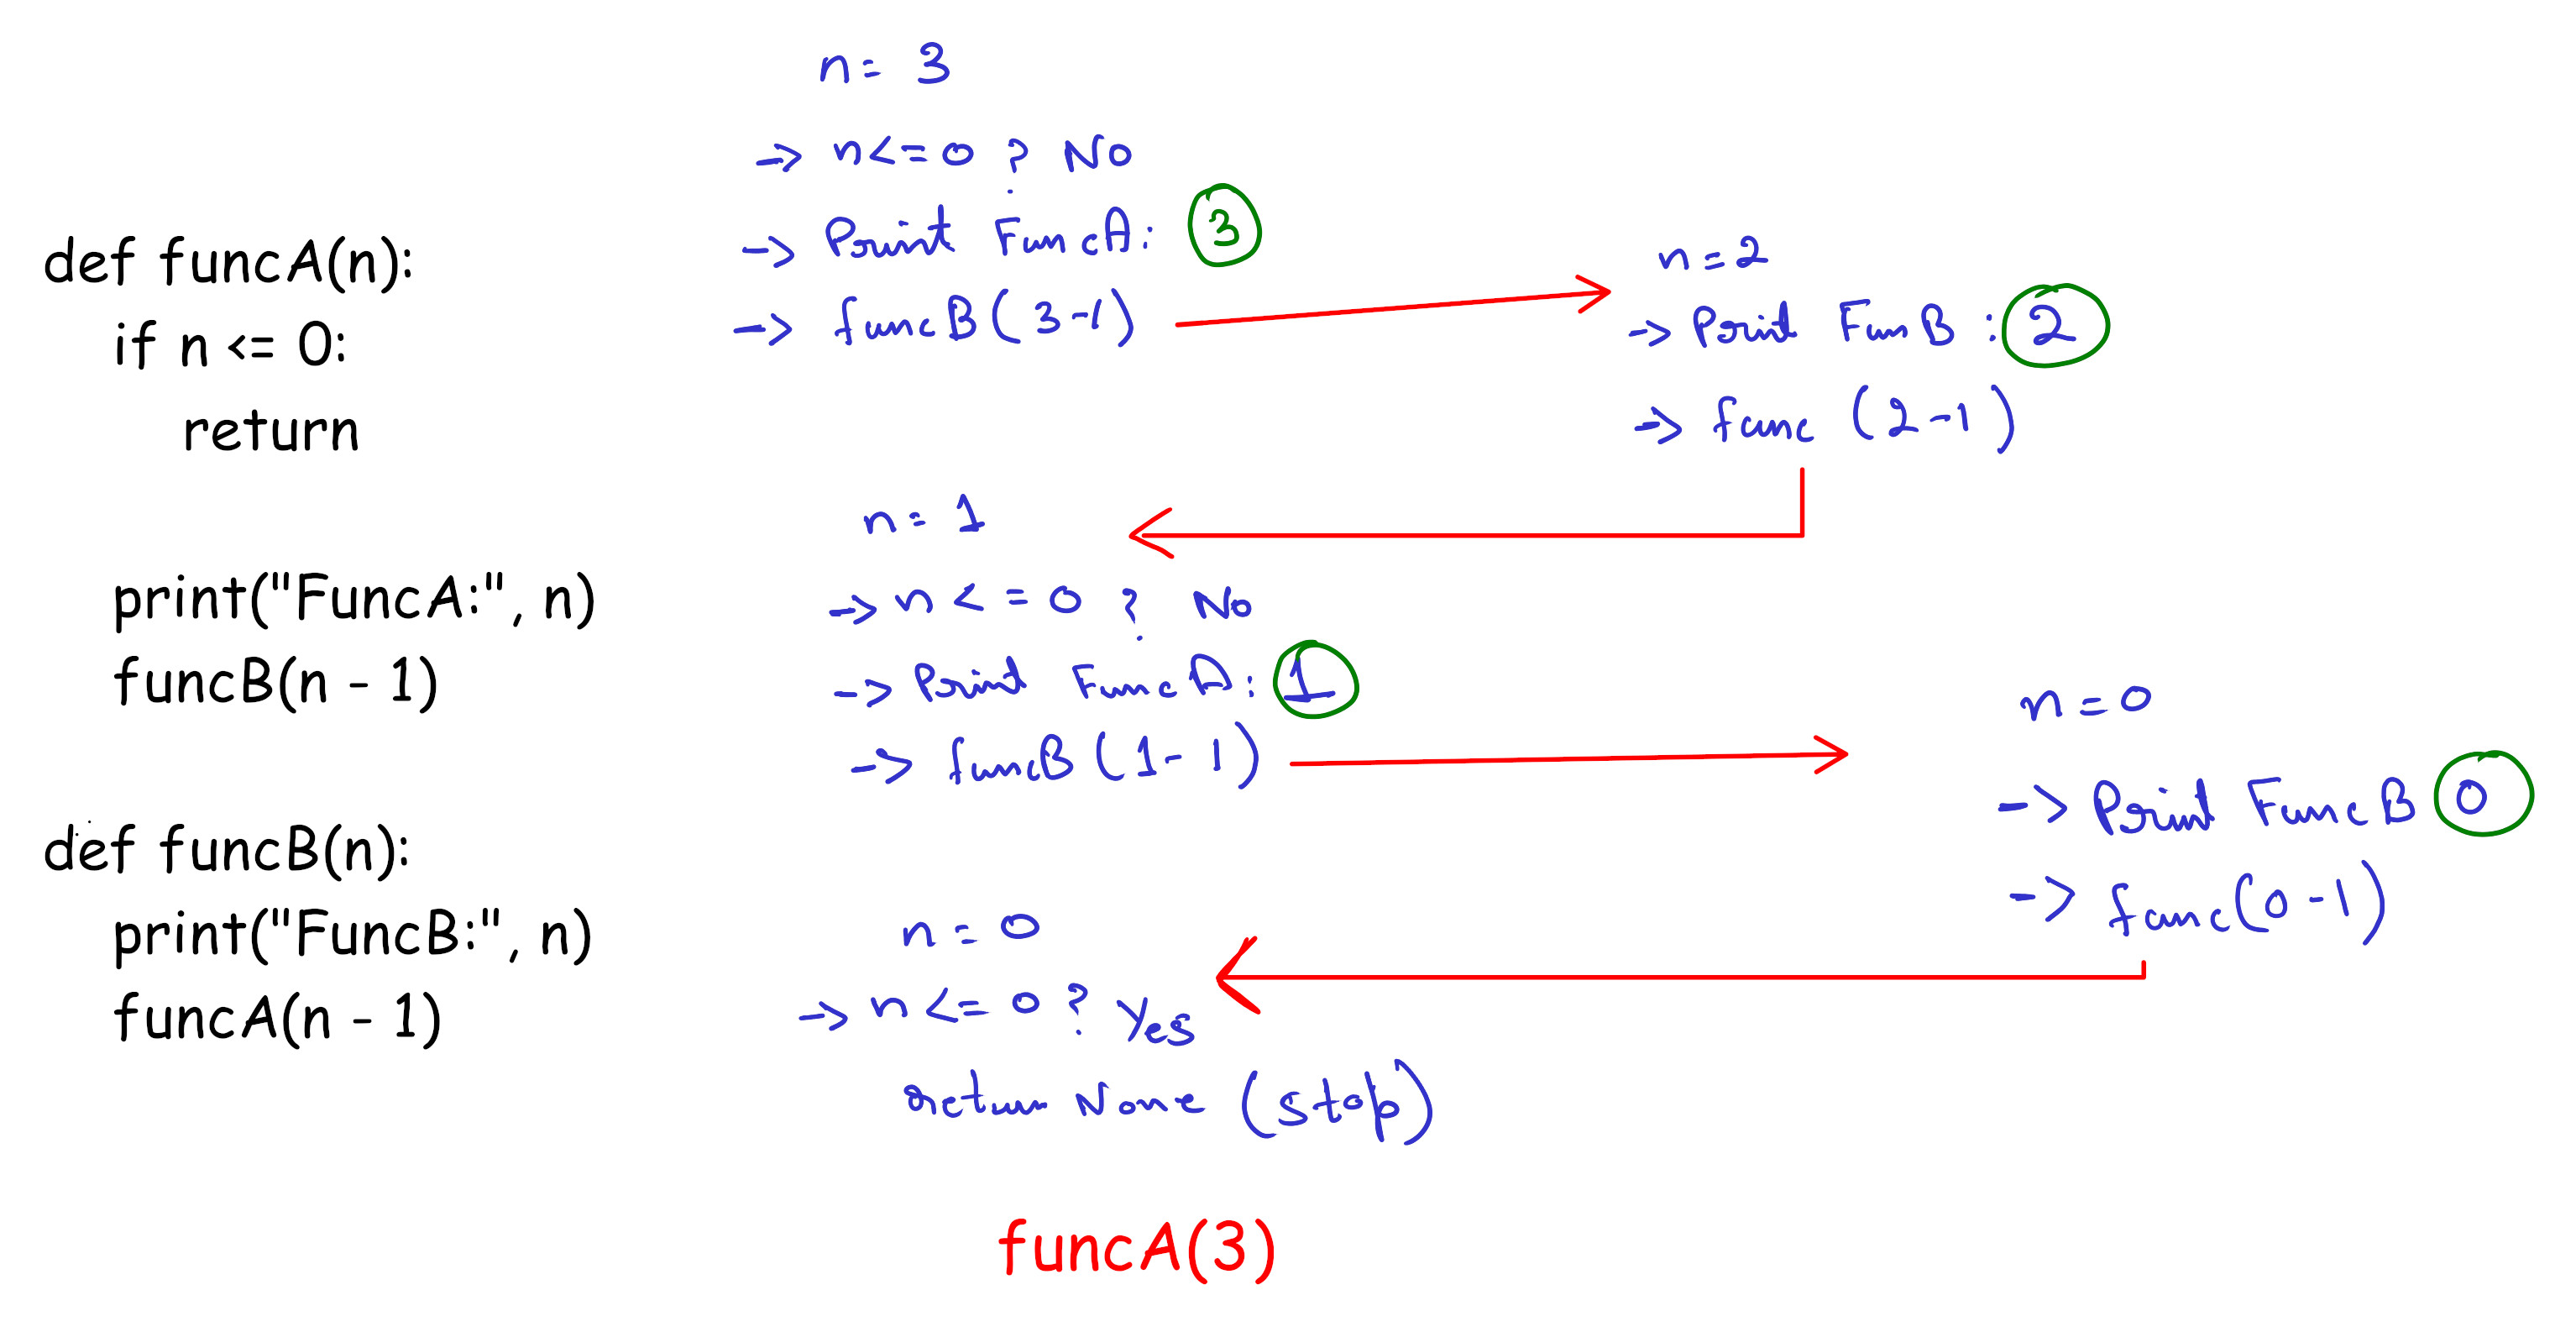 def funcA(n):
if n <= 0:
return
print("FuncA:", n)
funcB(n - 1)
def funcB(n):
print("FuncB:", n)
funcA(n - 1)
n = 3
-> n<=0 ? No
-> Print FuncA: 3
-> funcB(3-1)
n = 2
-> Print FunB : 2
-> func (2-1)
n = 1
-> n <= 0 ? No
-> Print FuncA: 1
-> funcB(1-1)
n = 0
-> Print FuncB 0
-> func(0-1)
n = 0
-> n <= 0 ? Yes
return None (stop)
funcA(3)